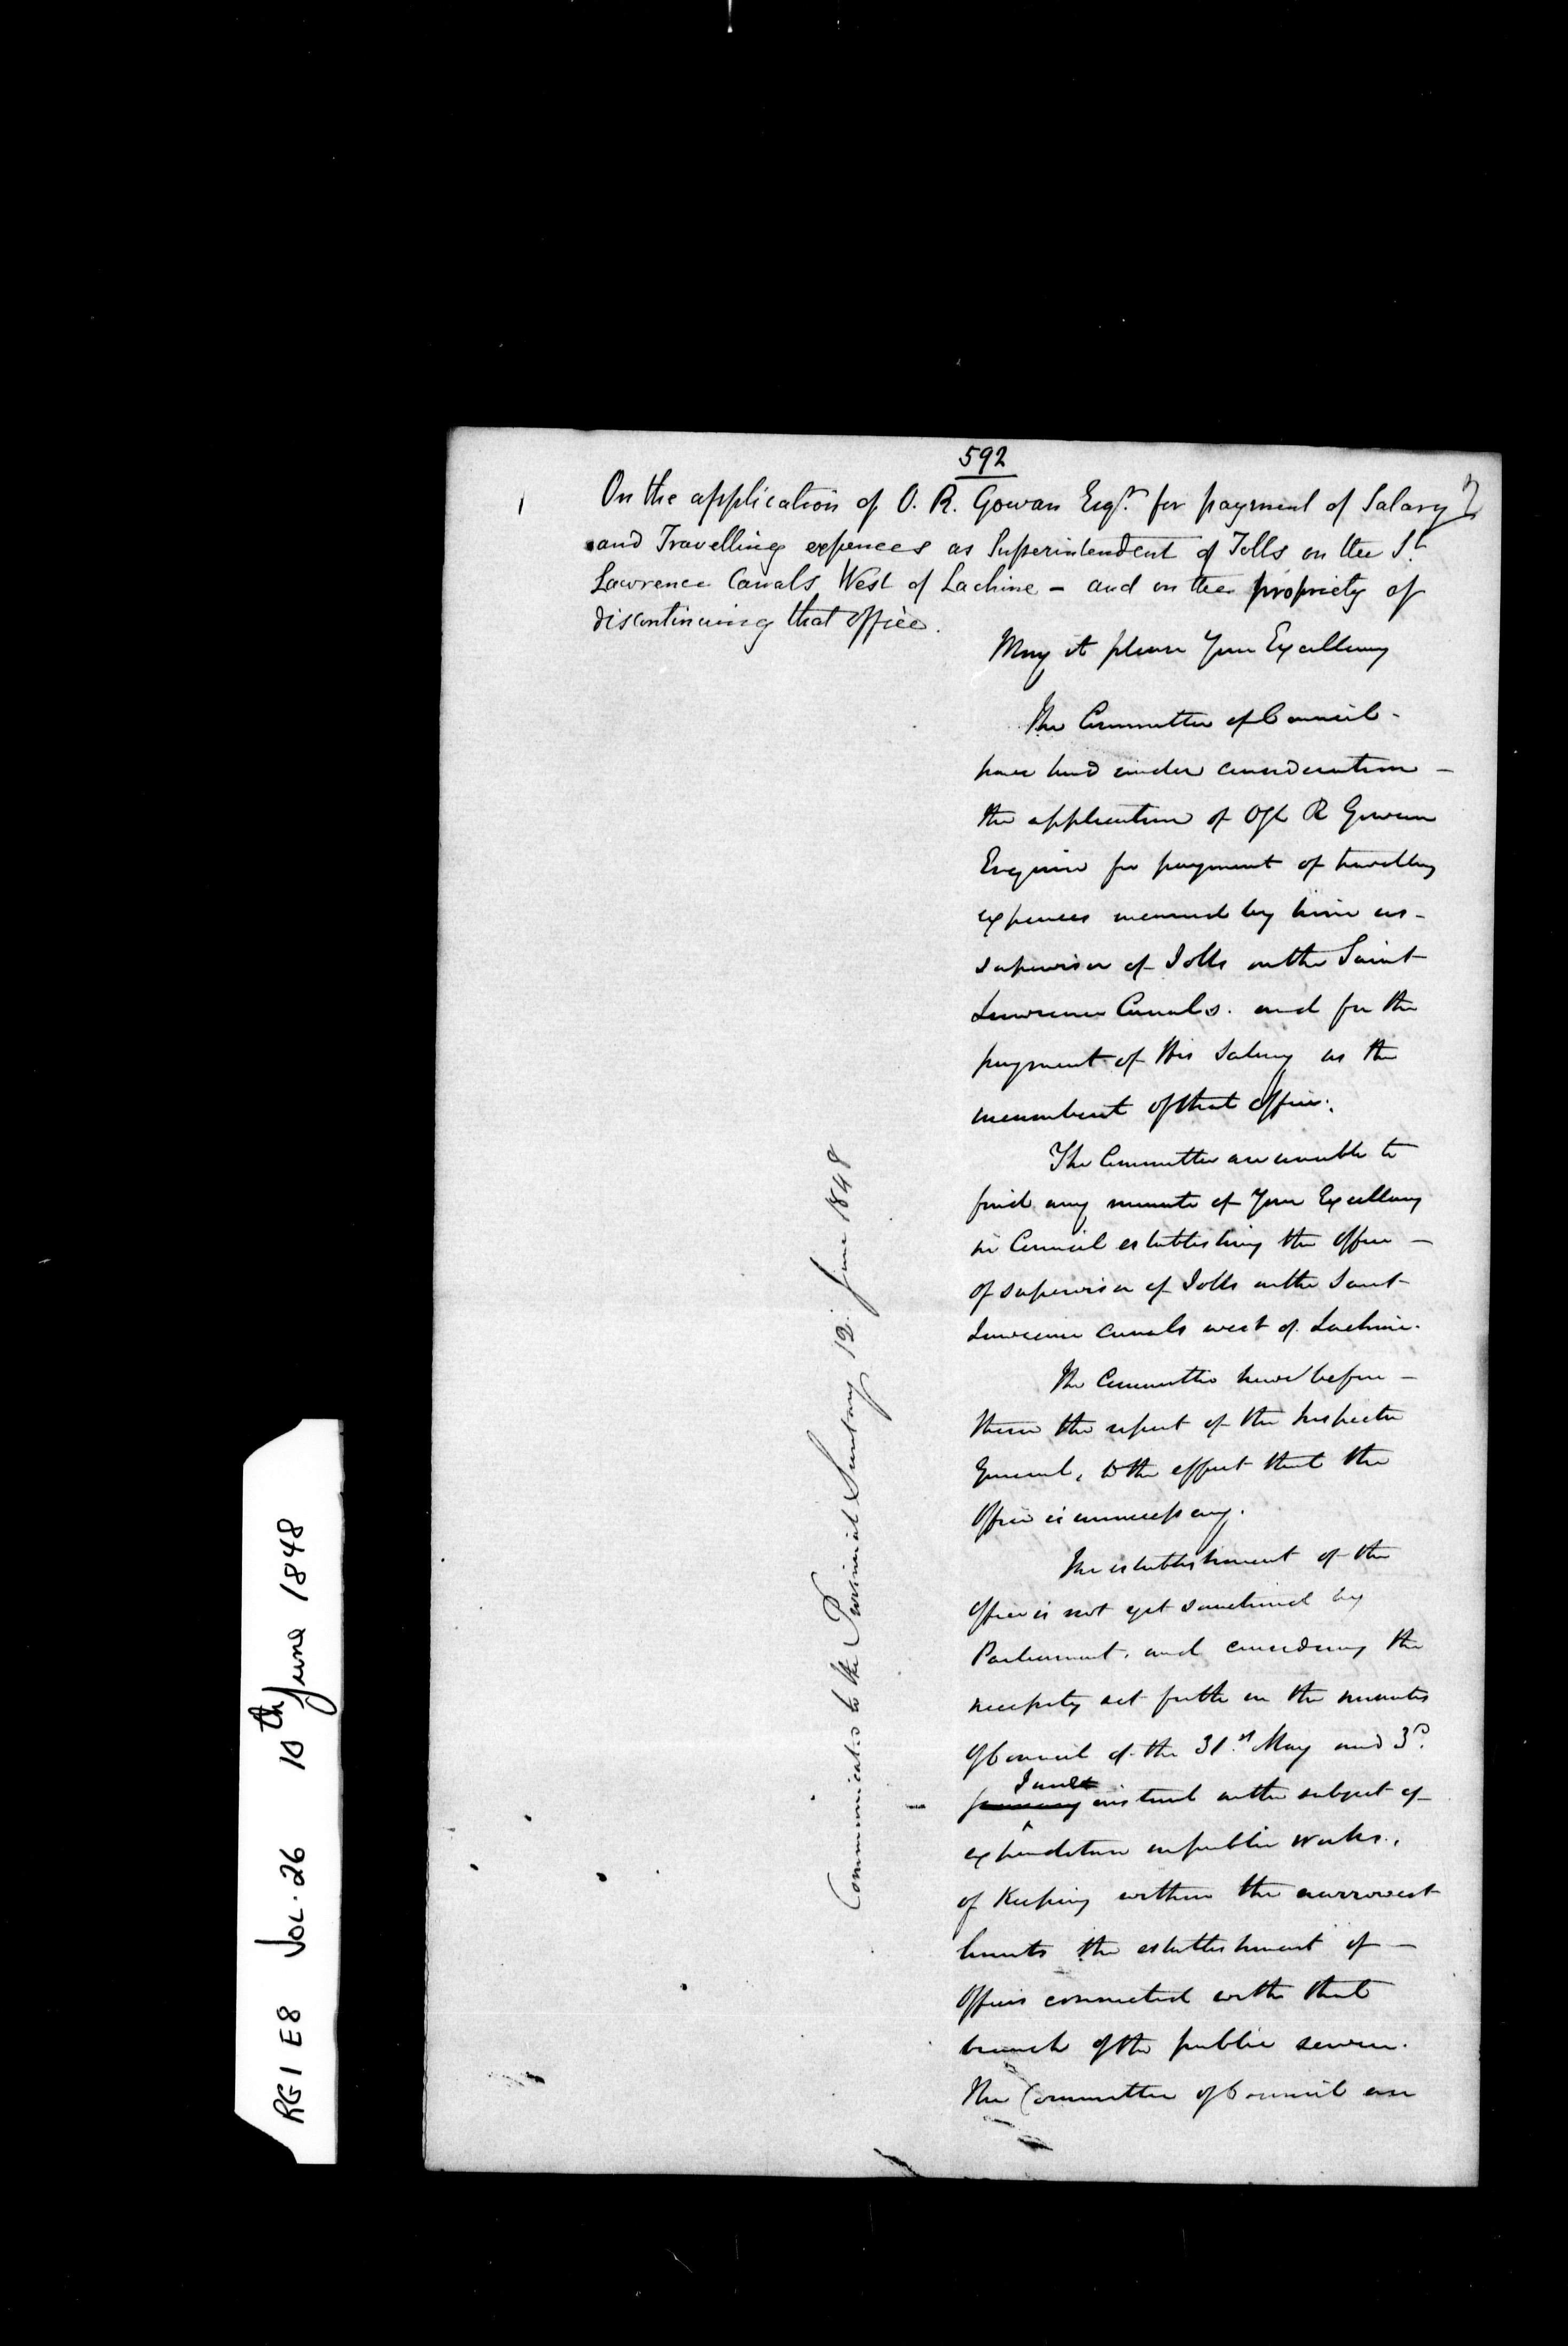 592
1
On the application of O. R. Gowan Esqr. for payment of Salary
and Travelling expences as Superintendent of Tolls on the St.
Lawrence Canals West of Lachine - and on the propriety of
discontinuing that office.
May it please Your Excellency
The Committee of Council -
have had under consideration -
the application of Ogle R Gowan
Esquire for payment of travelling
expences incurred by him as -
supervisor of Tolls on the Saint
Lawrence Canals. and for the
payment of His Salary as the
incumbent of that office.
The Committee are unable to
find any minute of Your Excellency
in Council establishing the office -
of supervisor of Tolls on the Saint
Lawrence Canals west of Lachine.
The Committee have before -
them the report of the Inspector
General, to the effect that the
Office is unnecessary.
The establishment of the
Office is not yet sanctioned by
Parliament, and considering the
necessity set forth in the minutes
of Council of the 31.st May and 3d.
June
instant on the subject of
expenditure on public works.,
of Keeping within the narrowest
limits the establishment of -
Offices connected with that
branch of the public service.
The Committee of Council are
Communicated to the Provincial Secretary 12. June 1848
RG1 E8 VOL. 26 10th June 1848